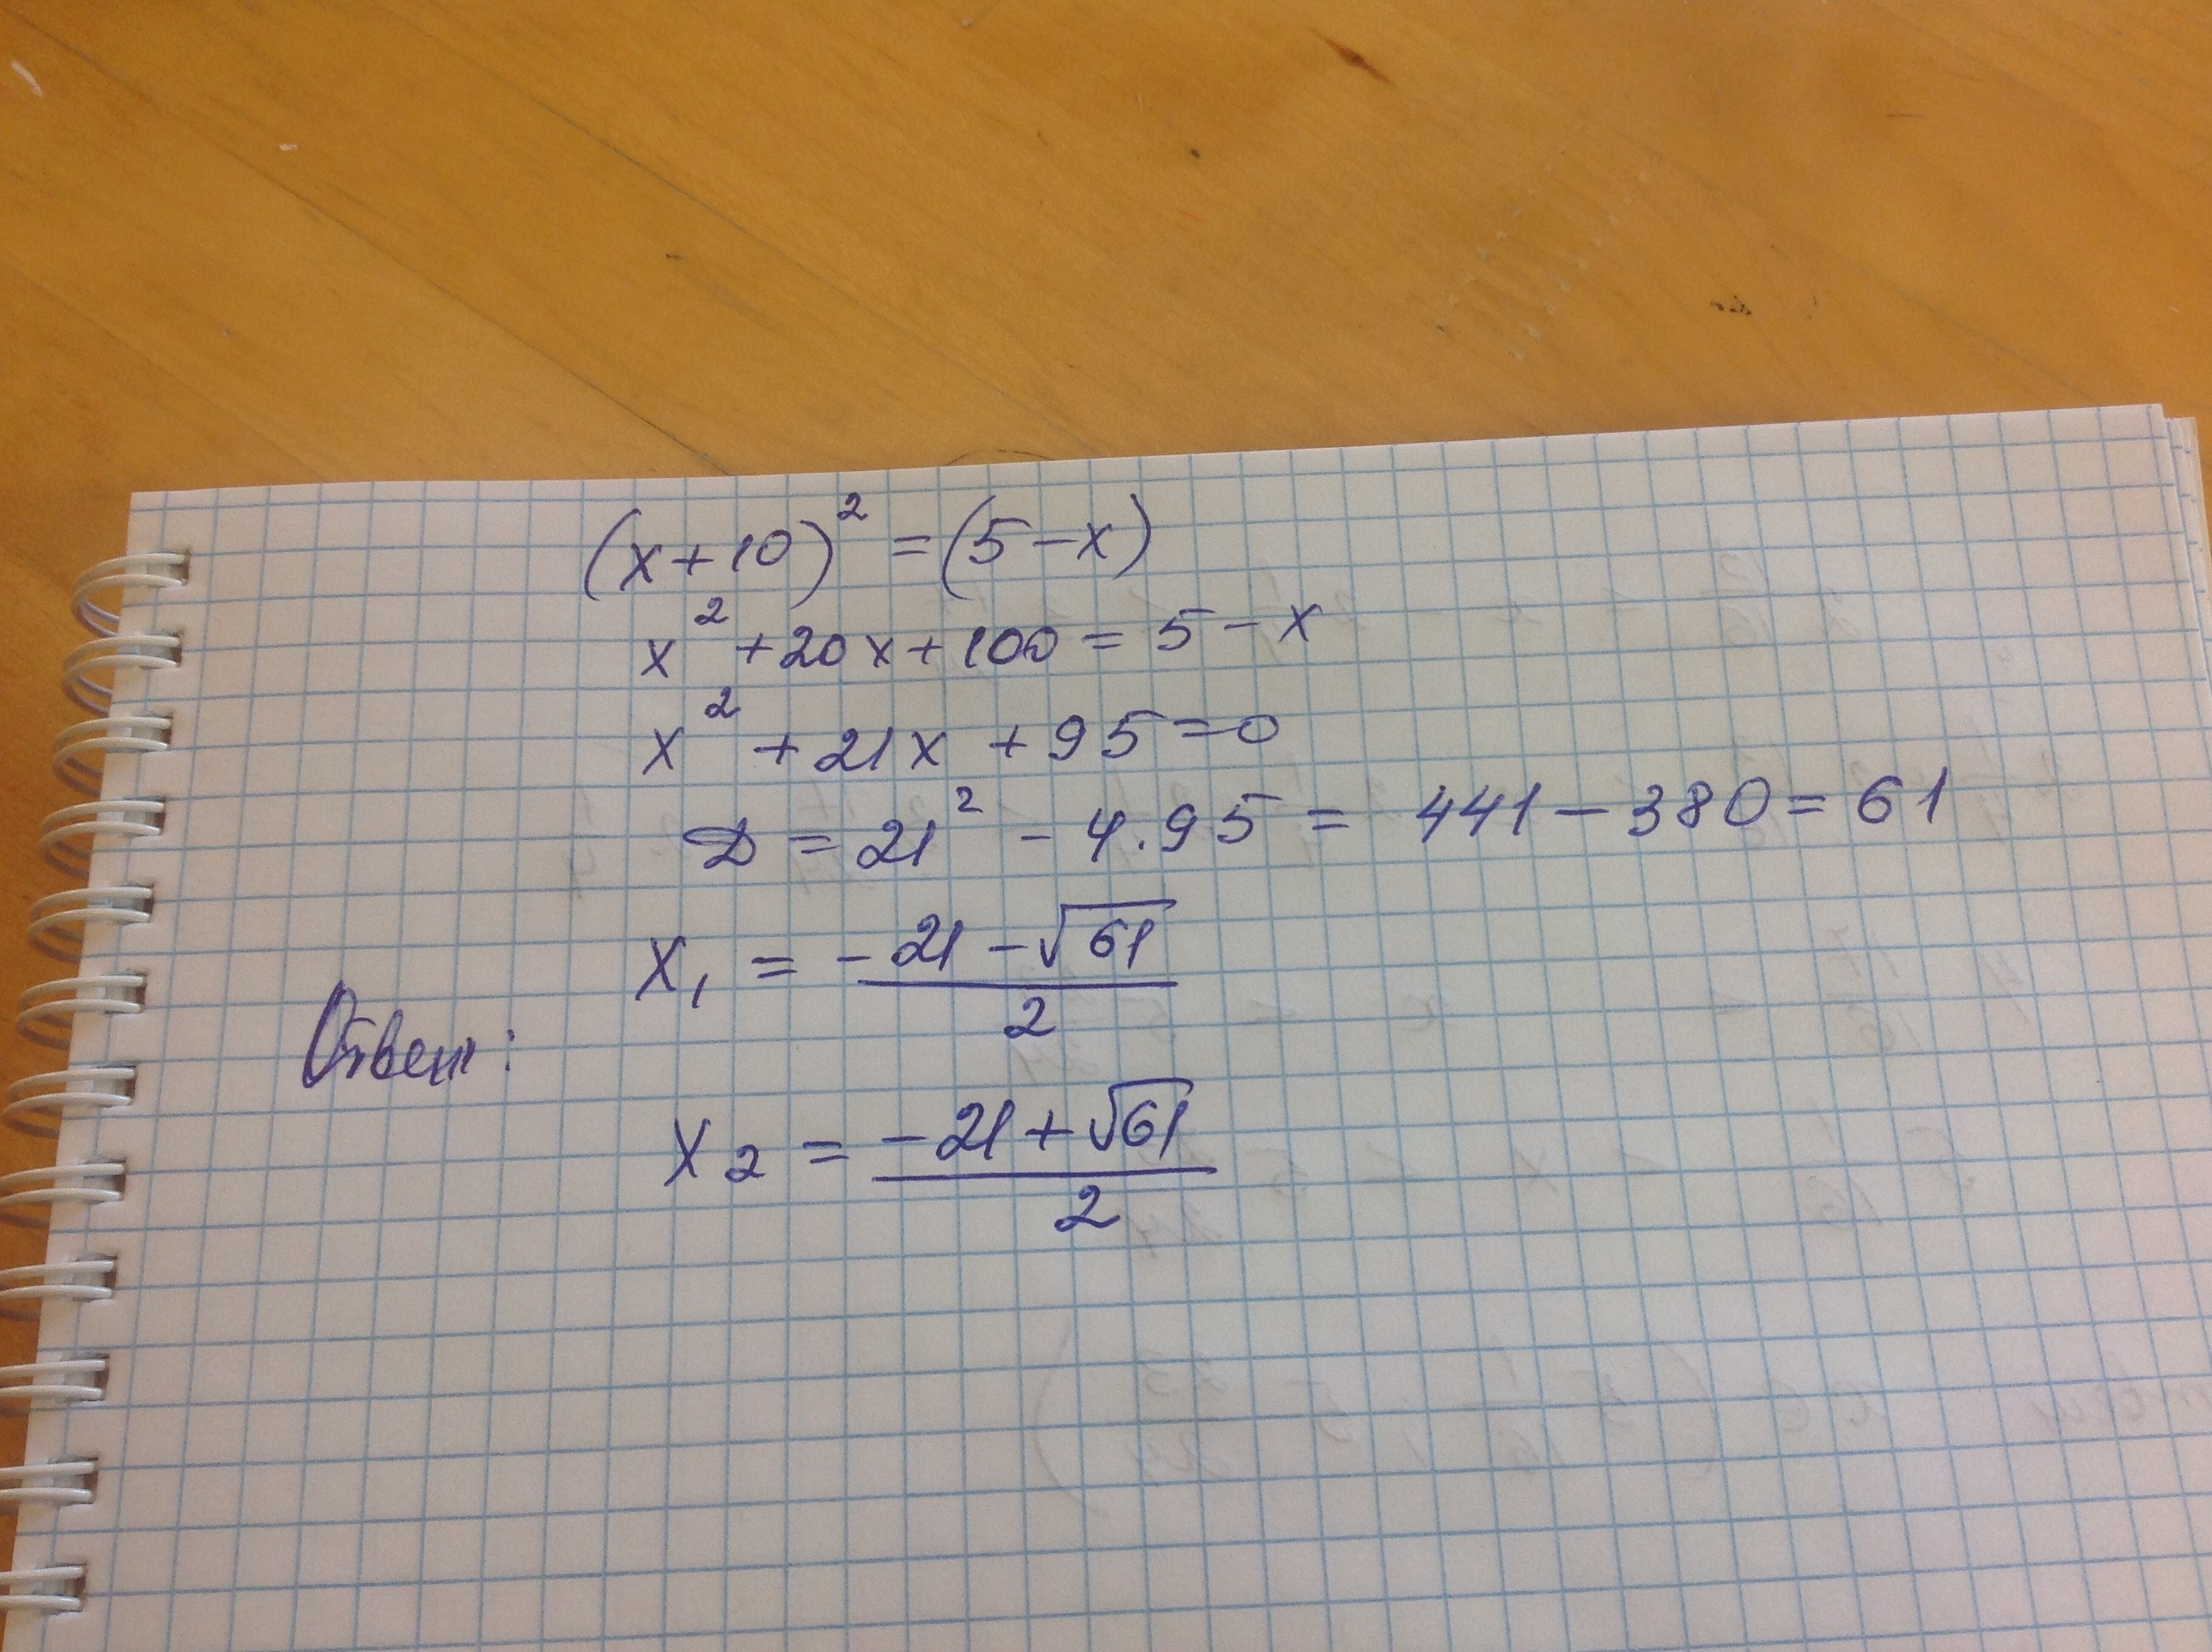 (x+10)² =(5-x)
x² +20x+100 = 5-x
x² +21x +95=0
D = 21² - 4.95 = 441-380=61
x₁ = -21-√61 / 2
Ответ:
x₂ = -21+√61 / 2